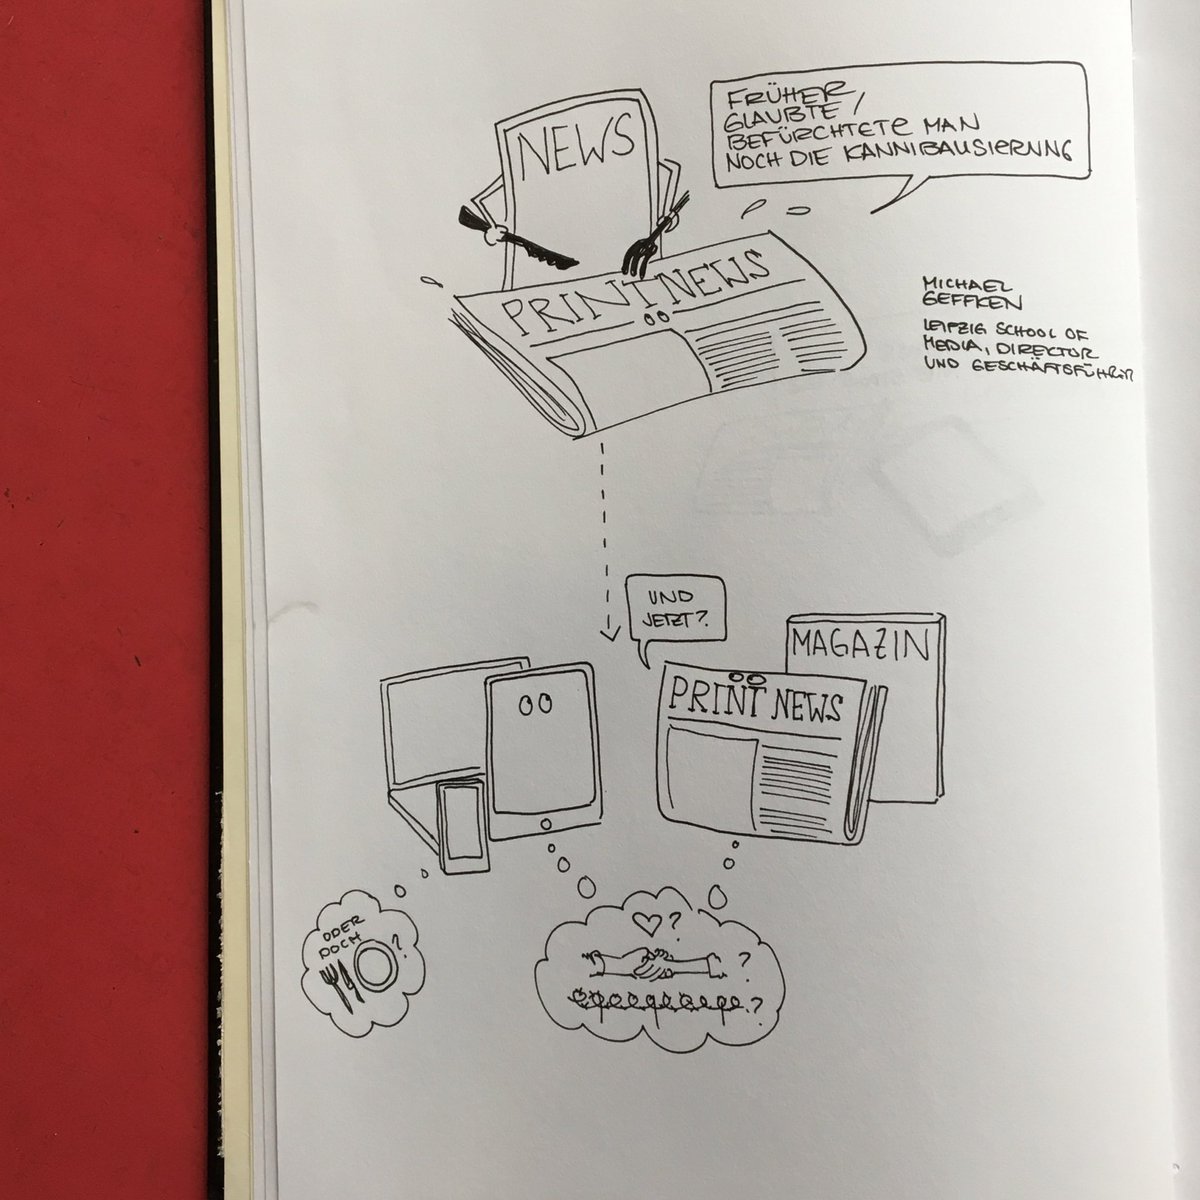 NEWS
FRÜHER
GLAUBTE /
BEFÜRCHTETE MAN
NOCH DIE KANNIBALISIERUNG
PRINT NEWS
MICHAEL
GEFFKEN
LEIPZIG SCHOOL OF
MEDIA, DIREKTOR
UND GESCHÄFTSFÜHRER
UND
JETZT?
MAGAZIN
PRINT NEWS
ODER
DOCH
?
?
?
?